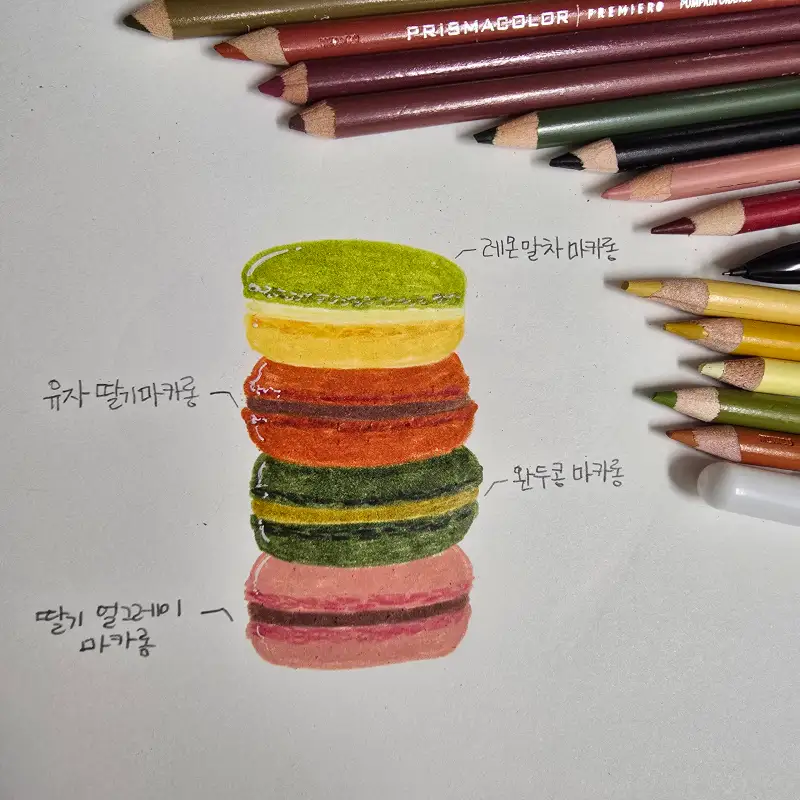 PRISMACOLOR | PREMIERO
레몬말차 마카롱
유자 딸기마카롱
완두콩 마카롱
딸기 얼그레이
마카롱